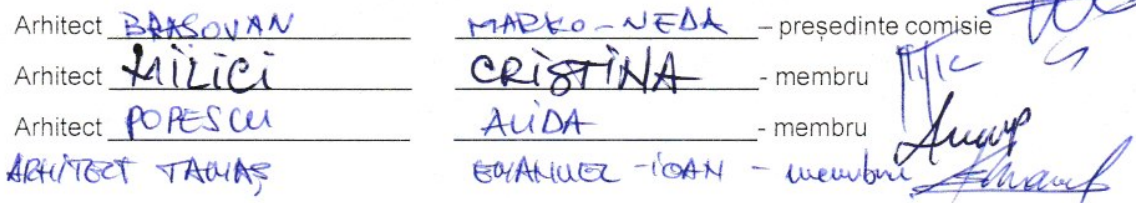 Arhitect BRASOVAN MARKO-NEDA – președinte comisie
Arhitect MILICI CRISTINA - membru
Arhitect POPESCU ALIDA - membru
ARHITECT TAMAȘ EMANUEL-IOAN - membru